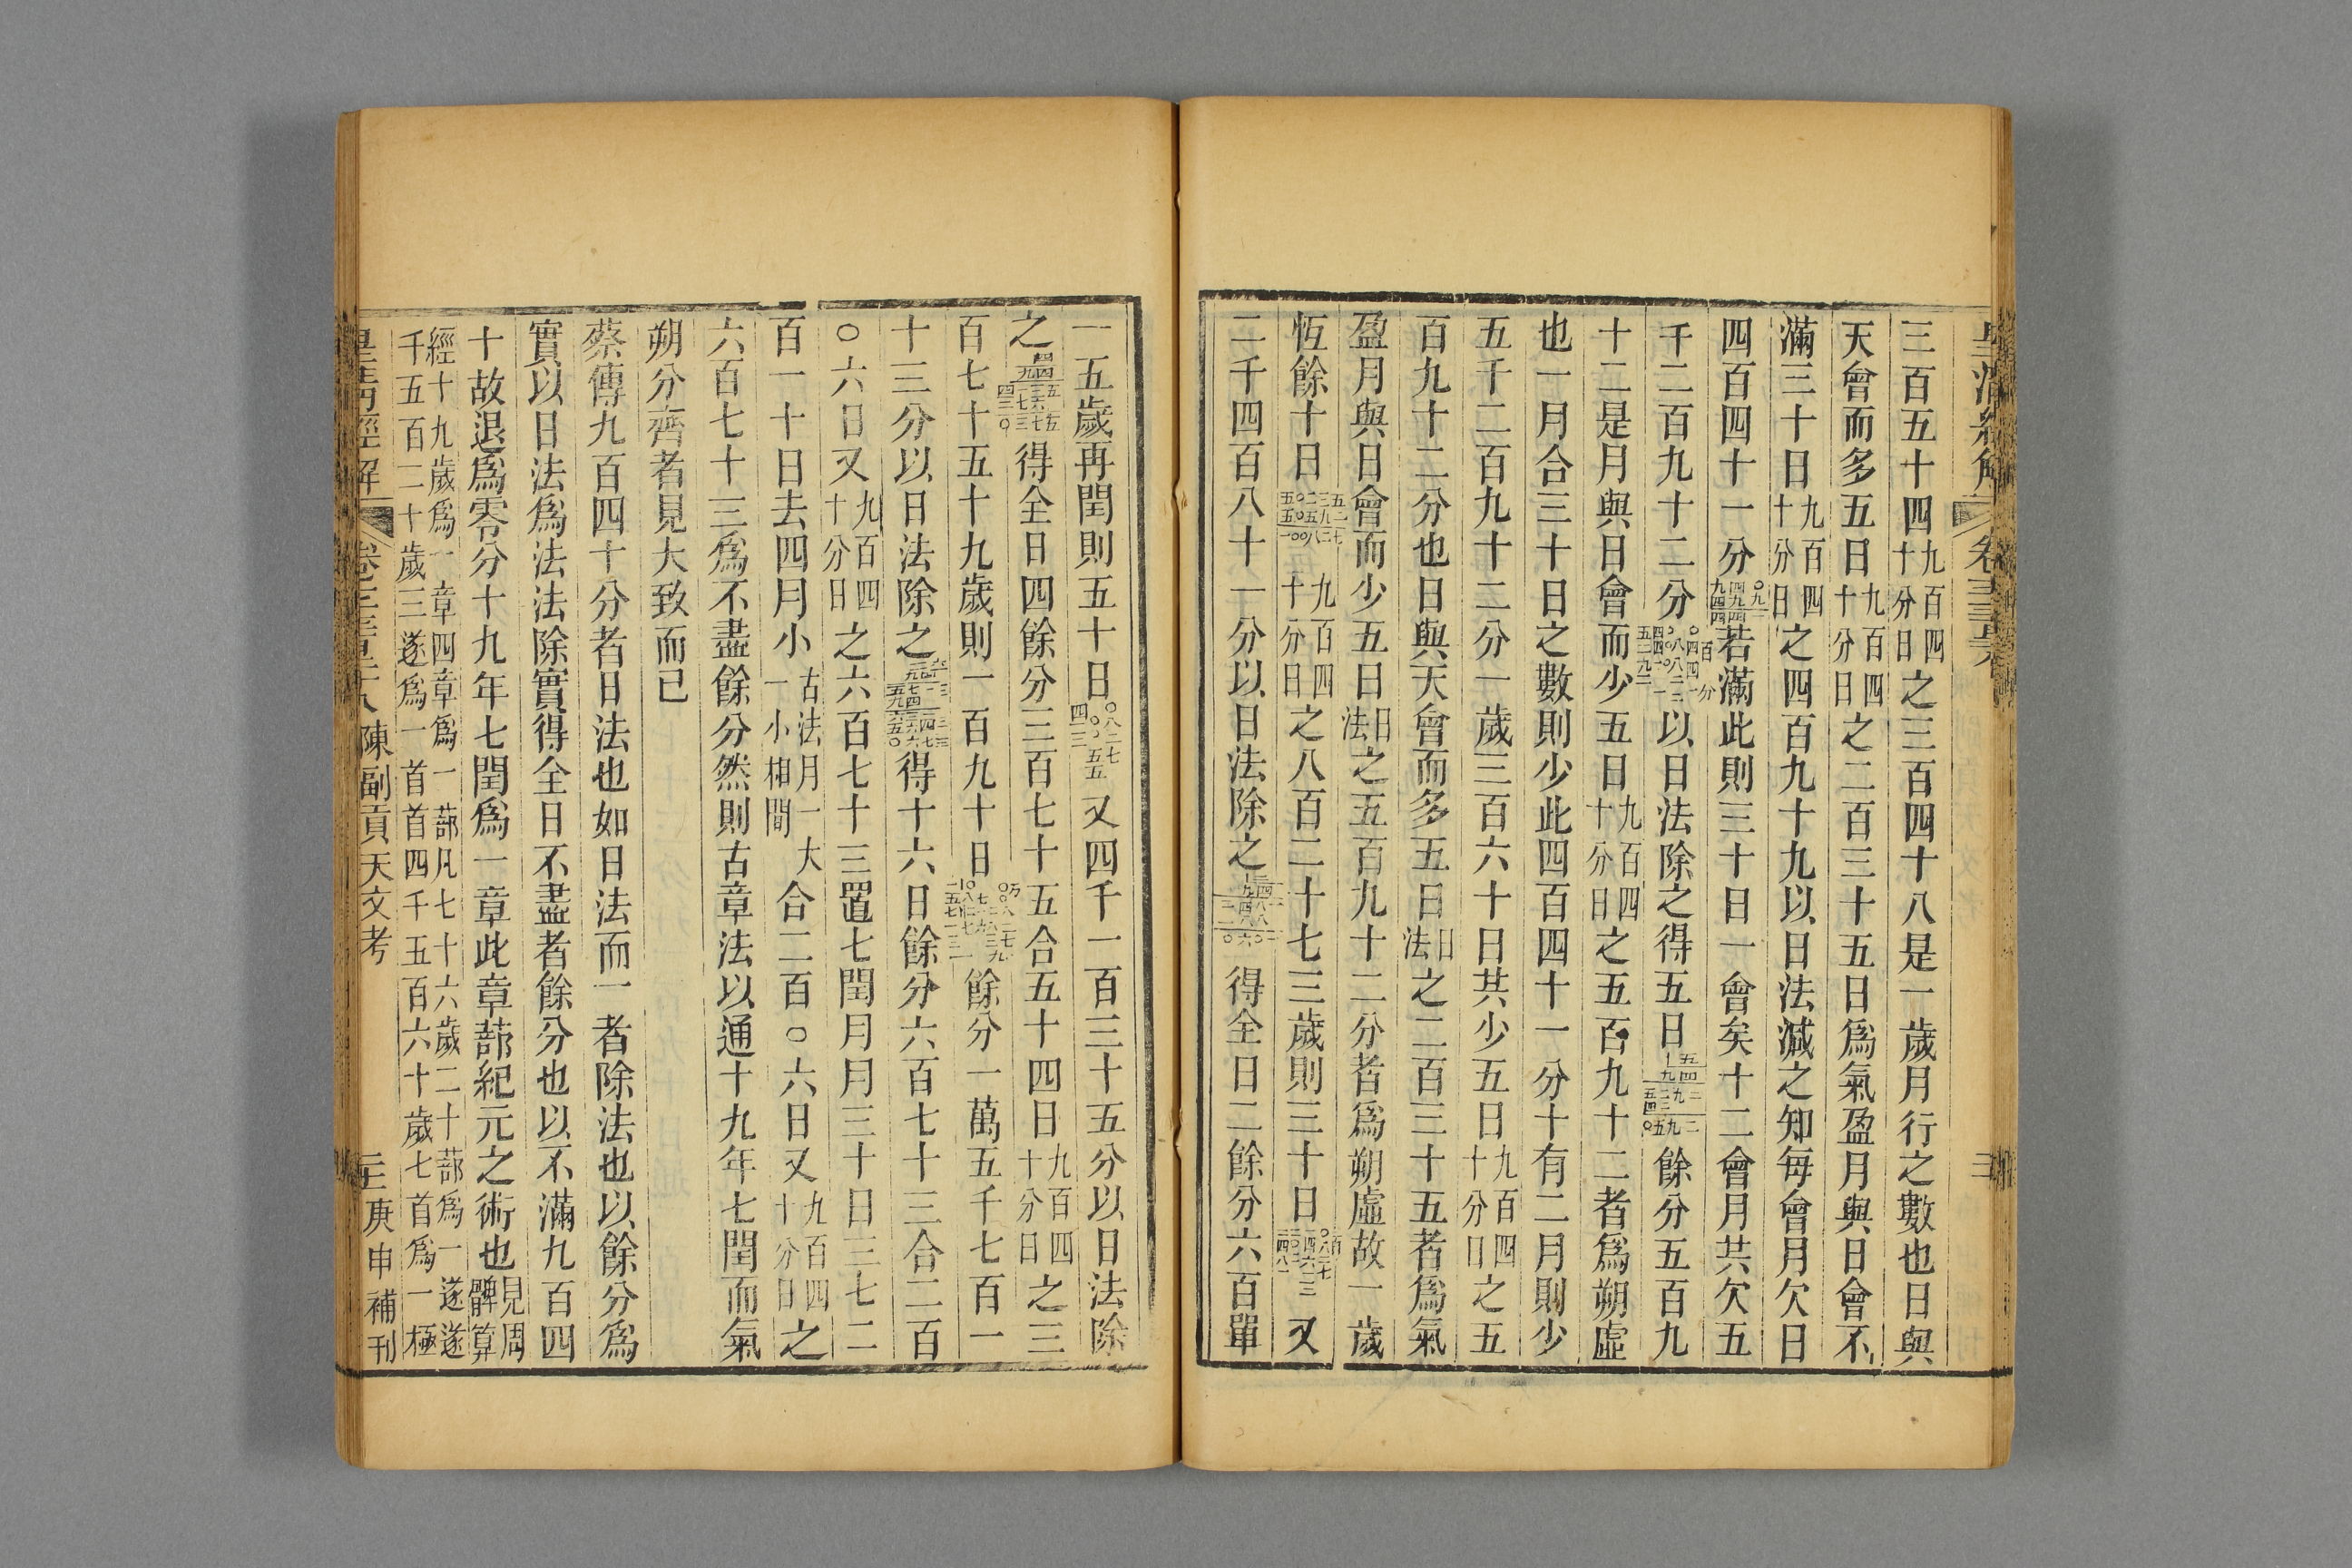 皇清經解
三百五十四九百四十分日之三百四十八是一歲月行之數也日與
天會而多五日九百四十分日之二百三十五日爲氣盈月與日會不
滿三十日九百四十分日之四百九十九以日法減之知每會月欠日
四百四十一分若滿此則三十日一會矣十二會月共欠五
千二百九十二分以日法除之得五日餘分五百九
十二是月與日會而少五日九百四十分日之五百九十二者爲朔虛
也一月合三十日之數則少此四百四十一分十有二月則少
五千二百九十二分一歲三百六十日共少五日九百四十分日之五
百九十二分也日與天會而多五日日法之二百三十五者爲氣
盈月與日會而少五日日法之五百九十二分者爲朔虛故一歲
恆餘十日九百四十分日之八百二十七三歲則三十日又
二千四百八十一分以日法除之得全日二餘分六百單
一五歲再閏則五十日又四千一百三十五分以日法除
之得全日四餘分三百七十五合五十四日九百四十分日之三
百七十五十九歲則一百九十日餘分一萬五千七百一
十三分以日法除之得十六日餘分六百七十三合二百
〇六日又九百四十分日之六百七十三置七閏月月三十日三七二
百一十日去四月小古法月一大一小相間合二百〇六日又九百四十分日之
六百七十三爲不盡餘分然則古章法以通十九年七閏而氣
朔分齊者見大致而已
蔡傳九百四十分者日法也如日法而一者除法也以餘分爲
實以日法爲法法除實得全日不盡者餘分也以不滿九百四
十故退爲零分十九年七閏爲一章此章蔀紀元之術也見周髀算
經十九歲爲一章四章爲一蔀凡七十六歲二十蔀爲一遂遂
千五百二十歲三遂爲一首首四千五百六十歲七首爲一極
皇清經解 陳副貢天文考 庚申補刊